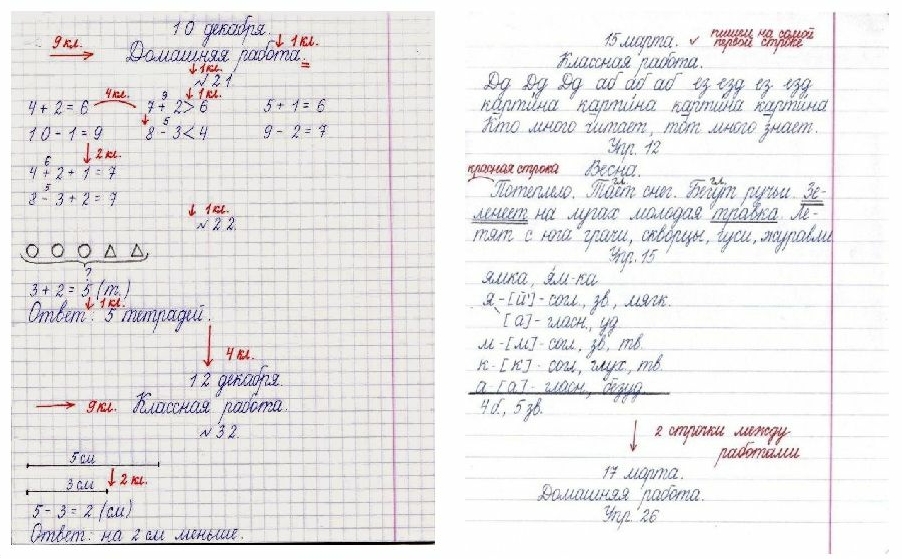 10 декабря.
9 кл.
1 кл.
Домашняя работа.
1 кл.
№21
1 кл.
4 кл.
9
4+2=6 7+2>6 5+1=6
5
10-1=9 8-3<4 9-2=7
2 кл.
6
4+2+1=7
5
8-3+2=7
1 кл.
№22.
?
3+2=5 (т.)
1 кл.
Ответ: 5 тетрадей.
4 кл.
12 декабря.
9кл. Классная работа.
№32.
5 см
3 см 2 кл.
5-3=2 (см)
Ответ: на 2 см меньше.
15 марта. пишем на самой
первой строке
Классная работа.
Дд Дд Дд аб аб аб ез езд ез езд
картина картина картина картина
Кто много читает, тот много знает.
Упр. 12
красная строка Весна.
гл. гл.
Потеплело. Тает снег. Бегут ручьи. Зе-
ленеет на лугах молодая травка. Ле-
тят с юга грачи, скворцы, гуси, журавли
Упр. 15
ямка, ям-ка
я-[й']-согл., зв., мягк.
[а]-гласн., уд.
м-[м]-согл., зв., тв.
к-[к]-согл., глух., тв.
а-[а]-гласн., безуд.
4 б., 5 зв.
2 строчки между
работами
17 марта.
Домашняя работа.
Упр. 26